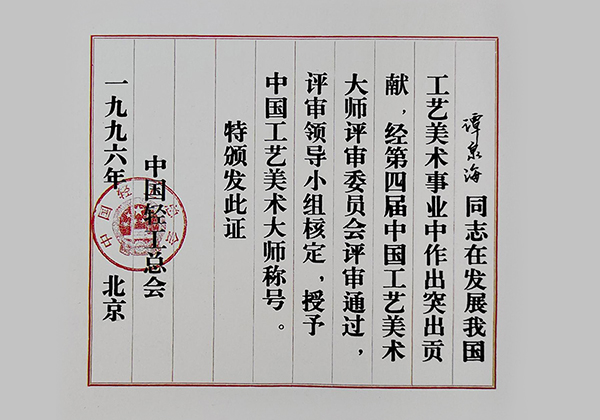 谭泉海同志在发展我国
工艺美术事业中作出突出贡
献，经第四届中国工艺美术
大师评审委员会评审通过，
评审领导小组核定，授予
中国工艺美术大师称号。
特颁发此证
中国轻工总会
一九九六年 北京
中国轻工总会